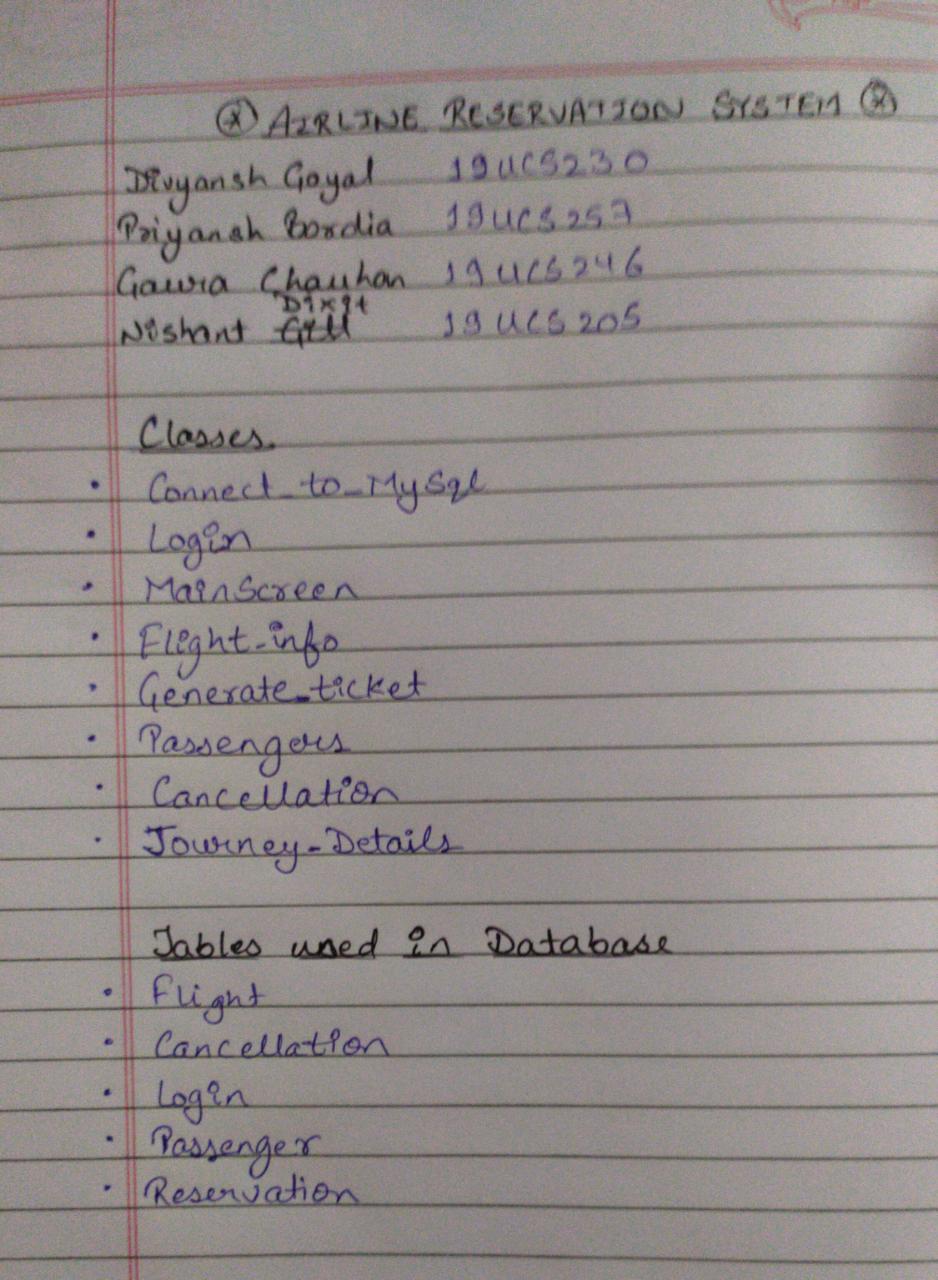 AIRLINE RESERVATION SYSTEM
Divyansh Goyal 19UCS230
Priyansh Bordia 19UCS257
Gawra Chauhan 19UCS246
Dixit
Nishant Gill 19UCS205
Classes.
• Connect_to_MySql
• Login
• MainScreen
• Flight-info
• Generate_ticket
• Passengers
• Cancellation
• Journey-Details
Tables used in Database
• Flight
• Cancellation
• Login
• Passenger
• Reservation